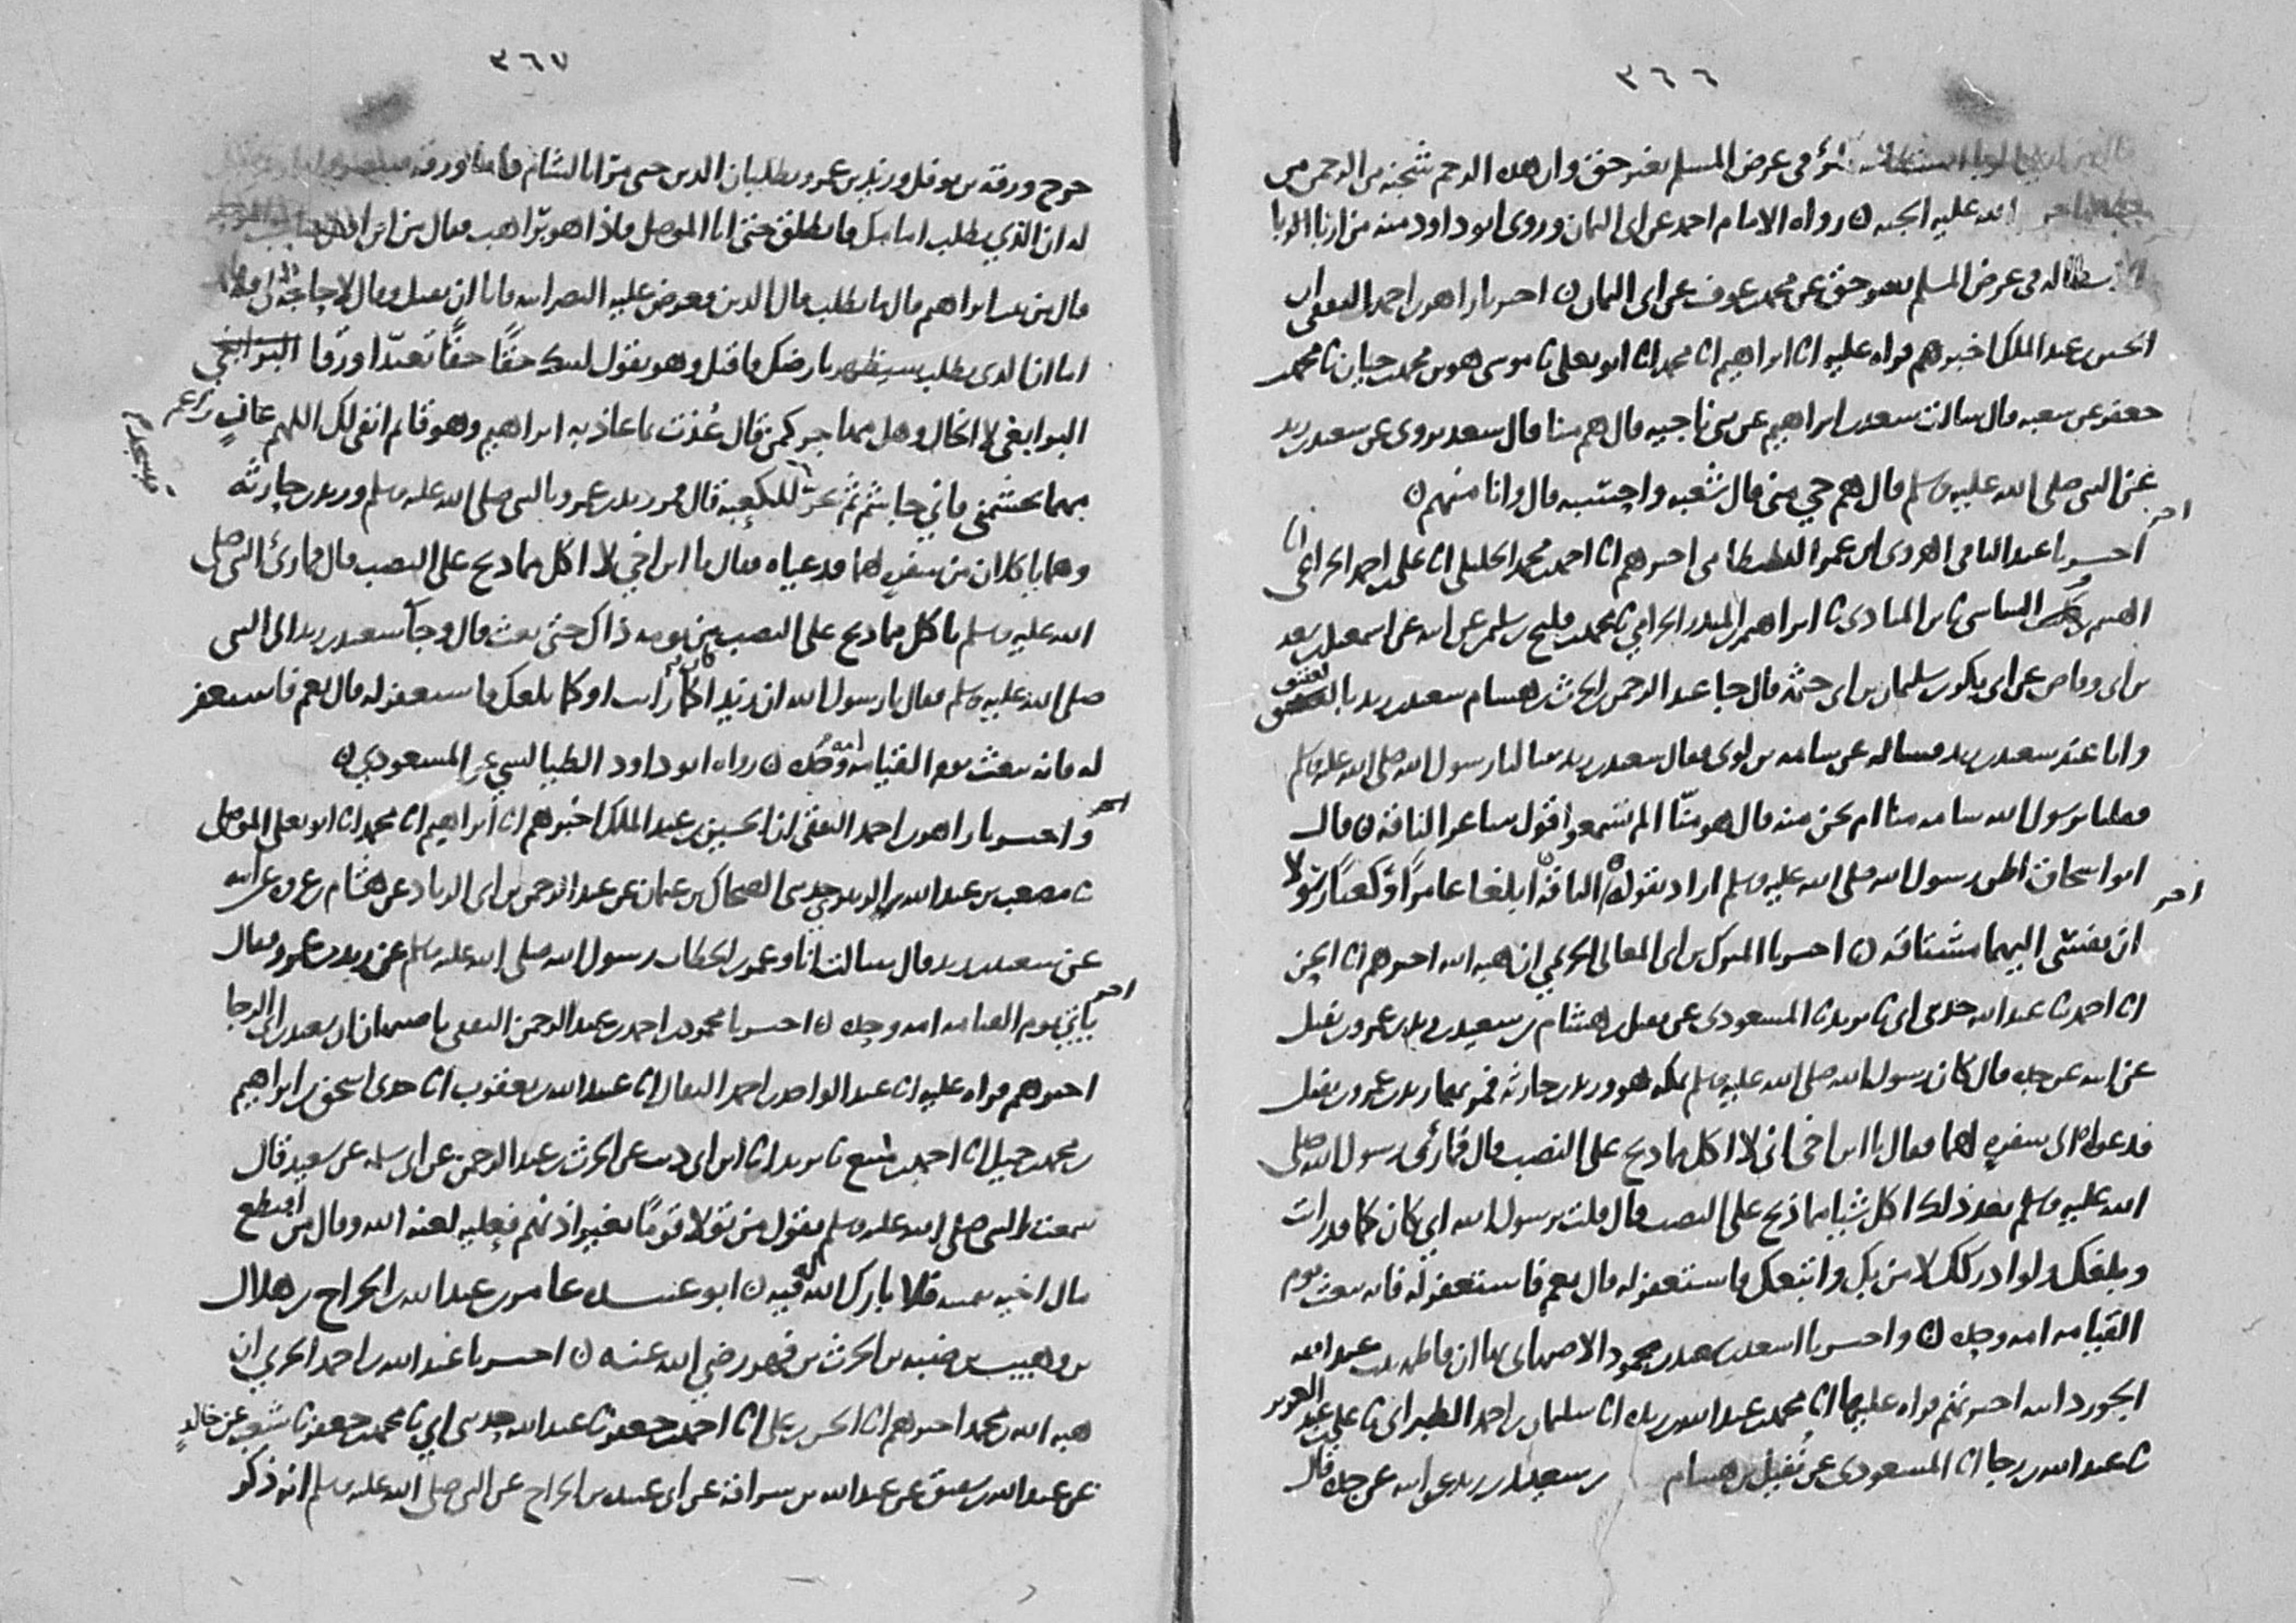 ٣٦٦
في عرض المسلم بغير حق وان هذه الرحم شجنة من الرحمن فمن
الله عليه الجنه ن رواه الامام احمد عن ابي اليمان وروى ابو داود منه من اربا الربا
في عرض المسلم بغير حق عن محمد بن عوف عن ابي اليمان ن اخبرنا زاهر بن احمد الثقفي ان
الحسين بن عبد الملك اخبرهم قراه عليه انا ابراهيم انا محمد انا ابو يعلى نا موسى هو بن محمد بن حيان نا محمد بن
جعفر عن شعبه قال سالت سعد بن ابراهيم عن بني ناجيه قال هم منا قال سعد يروى عن سعيد بن زيد
عن النبي صلى الله عليه وسلم قال هم حي مني قال شعبه واحسبه قال وانا منهم ن
اخبرنا عبد الباقي الهروى ان عمر البسطامي اخبرهم انا احمد بن محمد الخليلي انا علي بن احمد الخزاعي انا
الهيثم بن كليب الشاشي نا بن المنادى نا ابراهيم بن المنذر الحزامي نا محمد بن فليح بن سليمان عن ابيه عن اسمعيل بن محمد بن سعد
بن ابي وقاص عن ابي بكر بن سليمان بن ابي حثمه قال جا عبد الرحمن بن الحرث بن هشام سعيد بن زيد بالعقيق
وانا عند سعيد بن زيد فساله عن سامه بن لوى فقال سعيد بن زيد سالنا رسول الله صلى الله عليه وسلم
فقلنا يرسول الله سامه منا ام نحن منه قال هو منا الم تسمعوا قول شاعر الناقه ن قال
ابو اسحاق اظن رسول الله صلى الله عليه وسلم اراد بقوله الناقه ابلغا عامرًا وكعبًا رسولا
ان نفسي اليهما مشتاقه ن اخبرنا المبارك بن ابي المعالي الحريمي ان هبه الله اخبرهم انا الحسن
انا احمد نا عبد الله حدثني ابي نا يزيد نا المسعودى عن نفيل بن هشام بن سعيد بن زيد بن عمرو بن نفيل
عن ابيه عن جده قال كان رسول الله صلى الله عليه وسلم بمكه هو وزيد بن حارثه فمر بهما زيد بن عمرو بن نفيل
فدعواه الى سفره لهما فقال يا ابن اخي اني لا اكل مما ذبح على النصب قال فما رئي رسول الله صلى
الله عليه وسلم بعد ذلك اكل شيا مما ذبح على النصب قال قلت يرسول الله ان ابي كان كما قد رايت
وبلغك ولو ادركك لامن بك واتبعك فاستغفر له قال نعم فاستغفر له فانه يبعث يوم
القيامه امه وحده ن واخبرنا اسعد بن سعيد بن محمود الاصبهاني بها ان فاطمه بنت عبد الله
الجوزدانيه اخبرتهم قراه عليها انا محمد بن عبد الله بن ريذه انا سليمان بن احمد الطبراني نا علي بن عبد العزيز
نا عبد الله بن رجا انا المسعودى عن نفيل بن هشام بن سعيد بن زيد عن ابيه عن جده قال
٣٦٧
خرج ورقه بن نوفل وزيد بن عمرو يطلبان الدين حتى مرا بالشام فاما ورقه فتنصر واما زيد فقيل
له ان الذي تطلب امامك فانطلق حتى اتا الموصل فاذا هو براهب فقال من اين اقبل صاحب المرحله
قال من بيت ابراهيم قال ما تطلب قال الدين فعرض عليه النصرانيه فابا ان يقبل وقال لا حاجه لي فيها قال
اما ان الذى تطلب سيظهر بارضك فاقبل وهو يقول لبيك حقًا حقًا تعبدا ورقا
البر ابغي لا الخال وهل مهاجر كمن قال عُذت بما عاذ به ابراهيم وهو قائم انفي لك اللهم عانٍ راغم
مهما تجشمني فاني جاشم ثم يخر فيسجد للكعبه قال فمر زيد بن عمرو بالنبي صلى الله عليه وسلم وزيد بن حارثه
وهما ياكلان من سفره لهما فدعياه فقال يا ابن اخي لا اكل مما ذبح على النصب قال فما رئ النبي صلى
الله عليه وسلم ياكل مما ذبح على النصب من يومه ذاك حتى بعث قال وجا سعيد بن زيد الى النبي
صلى الله عليه وسلم فقال يا رسول الله ان زيدا كان كما رايت او كما بلغك فاستغفر له قال نعم فاستغفر
له فانه يبعث يوم القيامه امه وحده ن رواه ابو داود الطيالسي عن المسعودي ن
واخبرنا زاهر بن احمد الثقفي ان الحسين بن عبد الملك اخبرهم انا ابراهيم انا محمد انا ابو يعلى الموصلي
نا مصعب بن عبد الله الزبيري حدثني الضحاك بن عثمان عن عبد الرحمن بن ابي الزناد عن هشام بن عروه عن ابيه
عن سعيد بن زيد قال سالت انا وعمر بن الخطاب رسول الله صلى الله عليه وسلم عن زيد بن عمرو فقال
ياتي يوم القيامه امه وحده ن اخبرنا محمود بن احمد بن عبد الرحمن الثقفي باصبهان ان سعيد بن ابي الرجا
اخبرهم قراه عليه انا عبد الواحد بن احمد البقال انا عبيد الله بن يعقوب انا جدى اسحق بن ابراهيم
بن محمد بن جميل انا احمد بن منيع نا يزيد انا ابن ابي ذيب عن الحرث بن عبد الرحمن عن ابي سلمه عن سعيد قال
سمعت النبي صلى الله عليه وسلم يقول من تولا قومًا بغير اذنهم فعليه لعنه الله وقال من اقتطع
مال اخيه بيمينه فلا بارك الله له فيه ن ابو عبيده عامر بن عبد الله بن الجراح بن هلال
بن وهيب بن ضبه بن الحرث بن فهر رضي الله عنه ن اخبرنا عبد الله بن احمد الحربي ان
هبه الله بن محمد اخبرهم انا الحسن بن علي انا احمد بن جعفر نا عبد الله حدثني ابي نا محمد بن جعفر نا شعبه عن خالد
عن عبد الله بن شقيق عن عبد الله بن سراقه عن ابي عبيده بن الجراح عن النبي صلى الله عليه وسلم انه ذكر